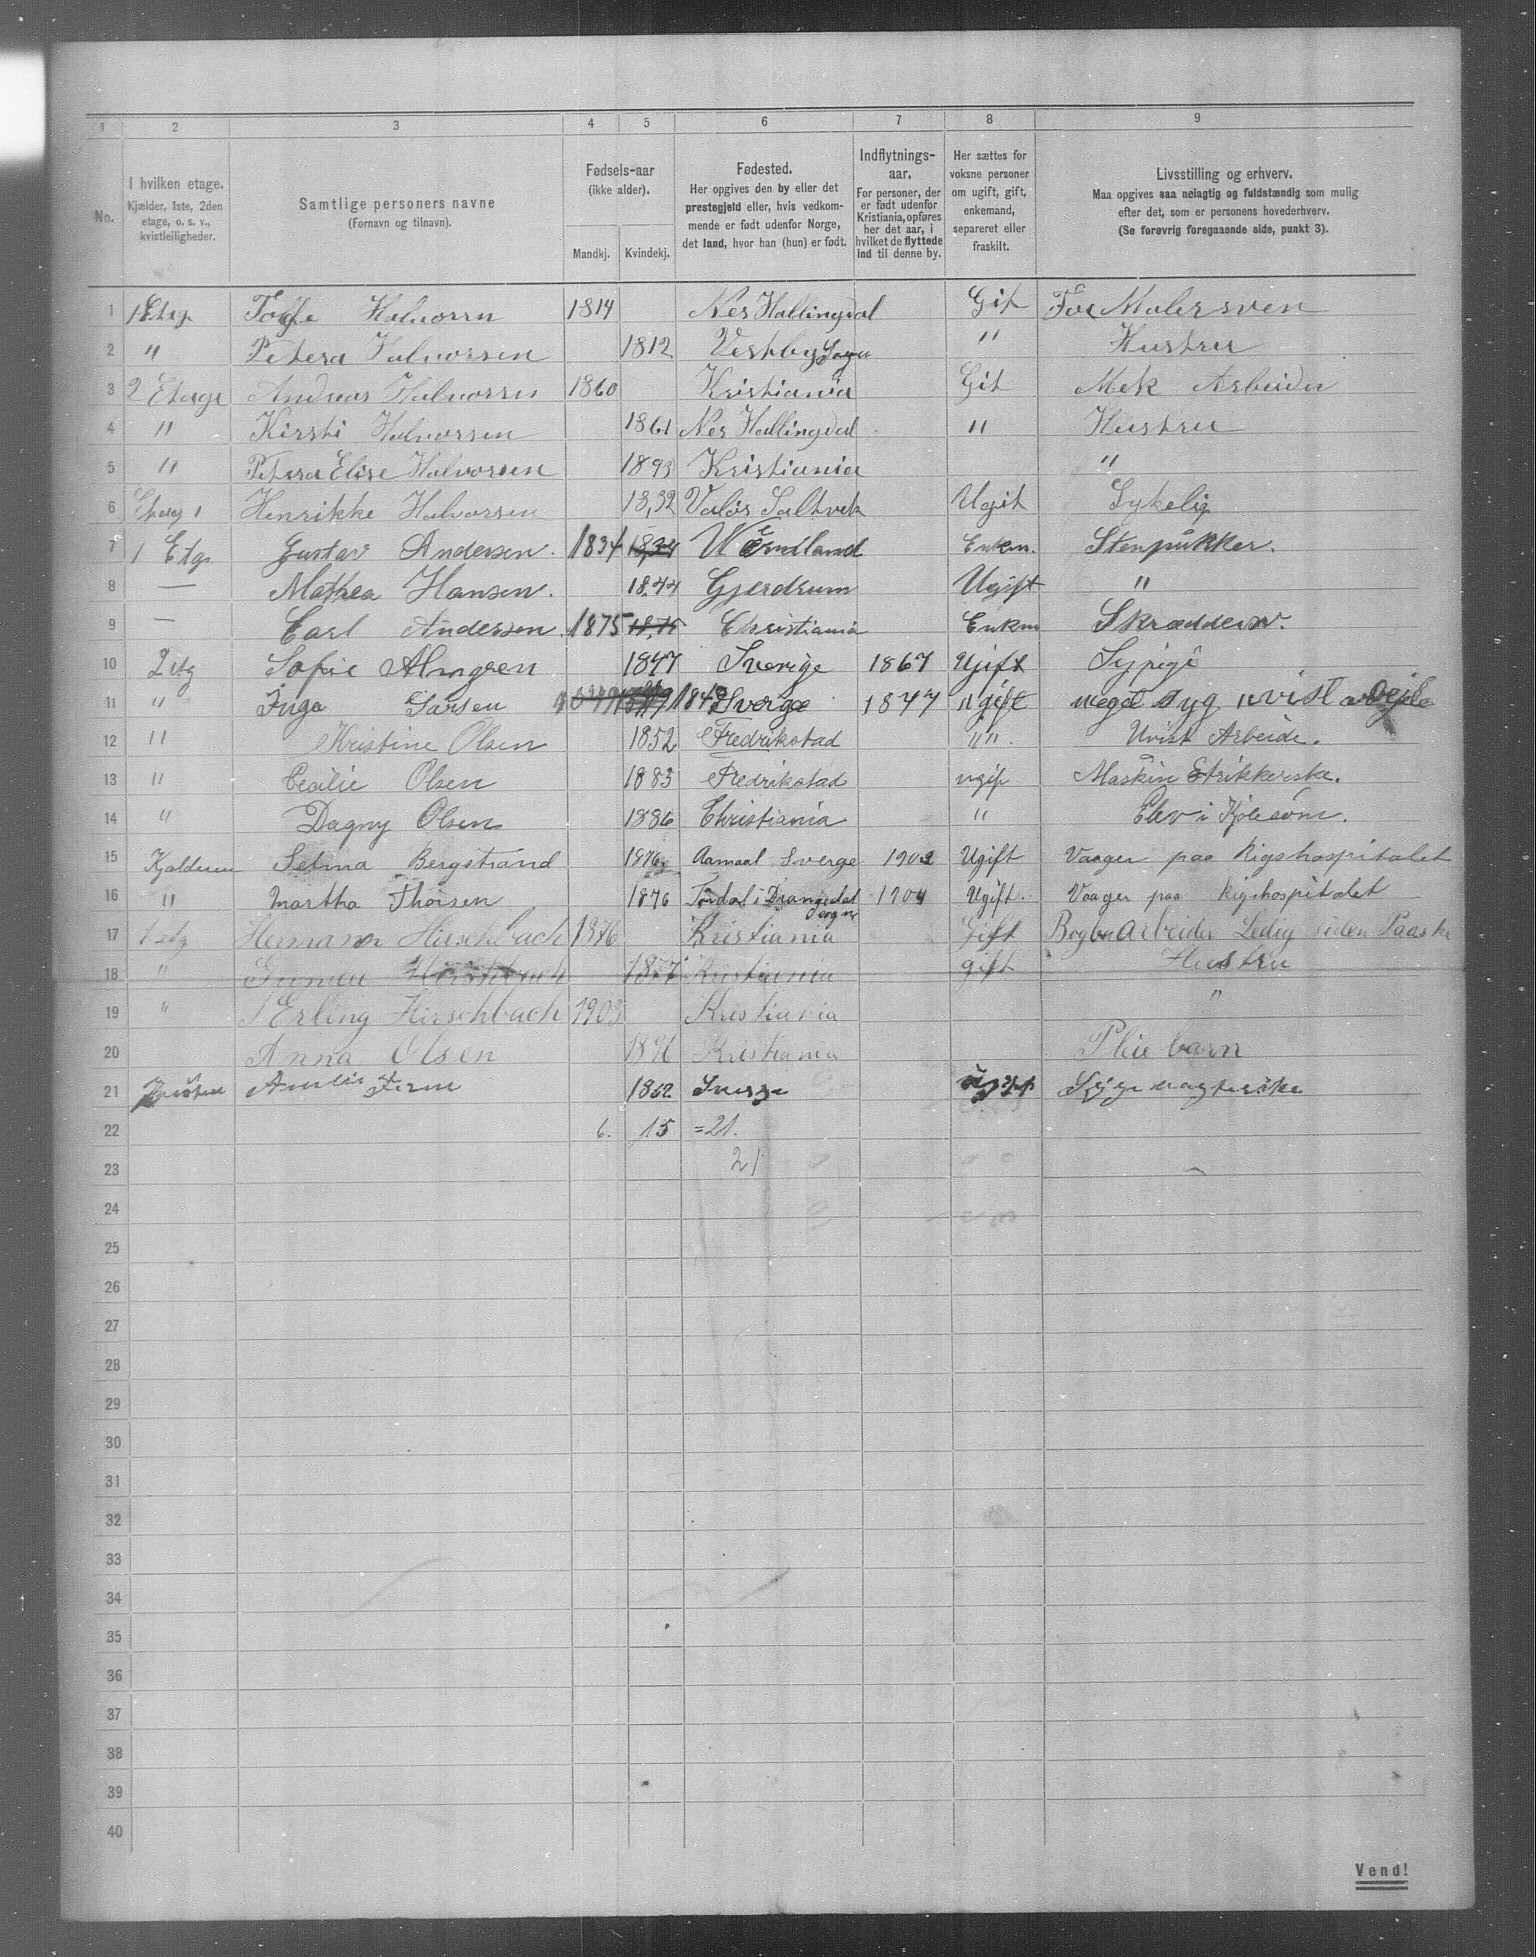 1 2 3 4 5 6 7 8 9
No.
I hvilken etage.
Kjælder, 1ste, 2den
etage, o. s. v.,
kvistleiligheder.
Samtlige personers navne
(Fornavn og tilnavn).
Fødsels-aar
(ikke alder).
Mandkj. Kvindekj.
Fødested.
Her opgives den by eller det
prestegjeld eller, hvis vedkom-
mende er født udenfor Norge,
det land, hvor han (hun) er født.
Indflytnings-
aar.
For personer, der
er født udenfor
Kristiania, opføres
her det aar, i
hvilket de flyttede
ind til denne by.
Her sættes for
voksne personer
om ugift, gift,
enkemand,
separeret eller
fraskilt.
Livsstilling og erhverv.
Maa opgives saa nøiagtig og fuldstændig som mulig
efter det, som er personens hovederhverv.
(Se forøvrig foregaaende side, punkt 3).
1 1 Etag Halvorsn 1814 Nes Hallingdal Gift Malersven
2 " Petera Halvorsen 1812 Vestby Sogn " Hustru
3 2 Etage Andreas Halvorsen 1860 Kristiania Gift Mek Arbeider
4 " Kirsti Halvorsen 1861 Nes Hallingdal " Hustru
5 " Petera Elise Halvorsen 1893 Kristiania "
6 Etag 1 Henrikke Halvorsen 1832 Ugift Sykelig
7 1 Etg. Gustav Andersen. 1834 1834 Vermland Enkm. Stenpukker.
8 — Mathea Hansen. 1844 Gjerdrum Ugift "
9 — Carl Andersen. 1875 1875 Christiania Enkm Skrædderw.
10 2 etg Sofie Almgren 1847 Sverige 1867 Ugift Sypige
11 " Inga Larsen 1849 Sverge 1877 ugift meget syg uvist
12 " Kristine Olsen 1852 Fredrikstad " Uvist Arbeide.
13 " Cecilie Olsen 1883 Fredrikstad ugif Maskin Strikkerske.
14 " Dagny Olsen 1886 Christiania " Elev i Kjolesøm.
15 Kjalderen Selma Bergstrand 1876 Aamaal Sverge 1903 Ugift Vaager paa Rigshospitalet
16 " Martha Thorsen 1876 Tørdal i Drangedal sogn 1904 Ugift. Vaager paa Rigshospitalet
17 1 etg Hermann Hirschbach 1876 Kristiania Gift Arbeider Ledig siden Paaske
18 " Hirschbach 1877 Kristiania gift Hustru
19 " Erling Hirschbach 1903 Kristiania "
20 Anna Olsen 1896 Kristiania Pleie barn
21 1862 Sverge Ugift
22 6. 15 =21.
23 21
24
25
26
27
28
29
30
31
32
33
34
35
36
37
38
39
40
Vend!